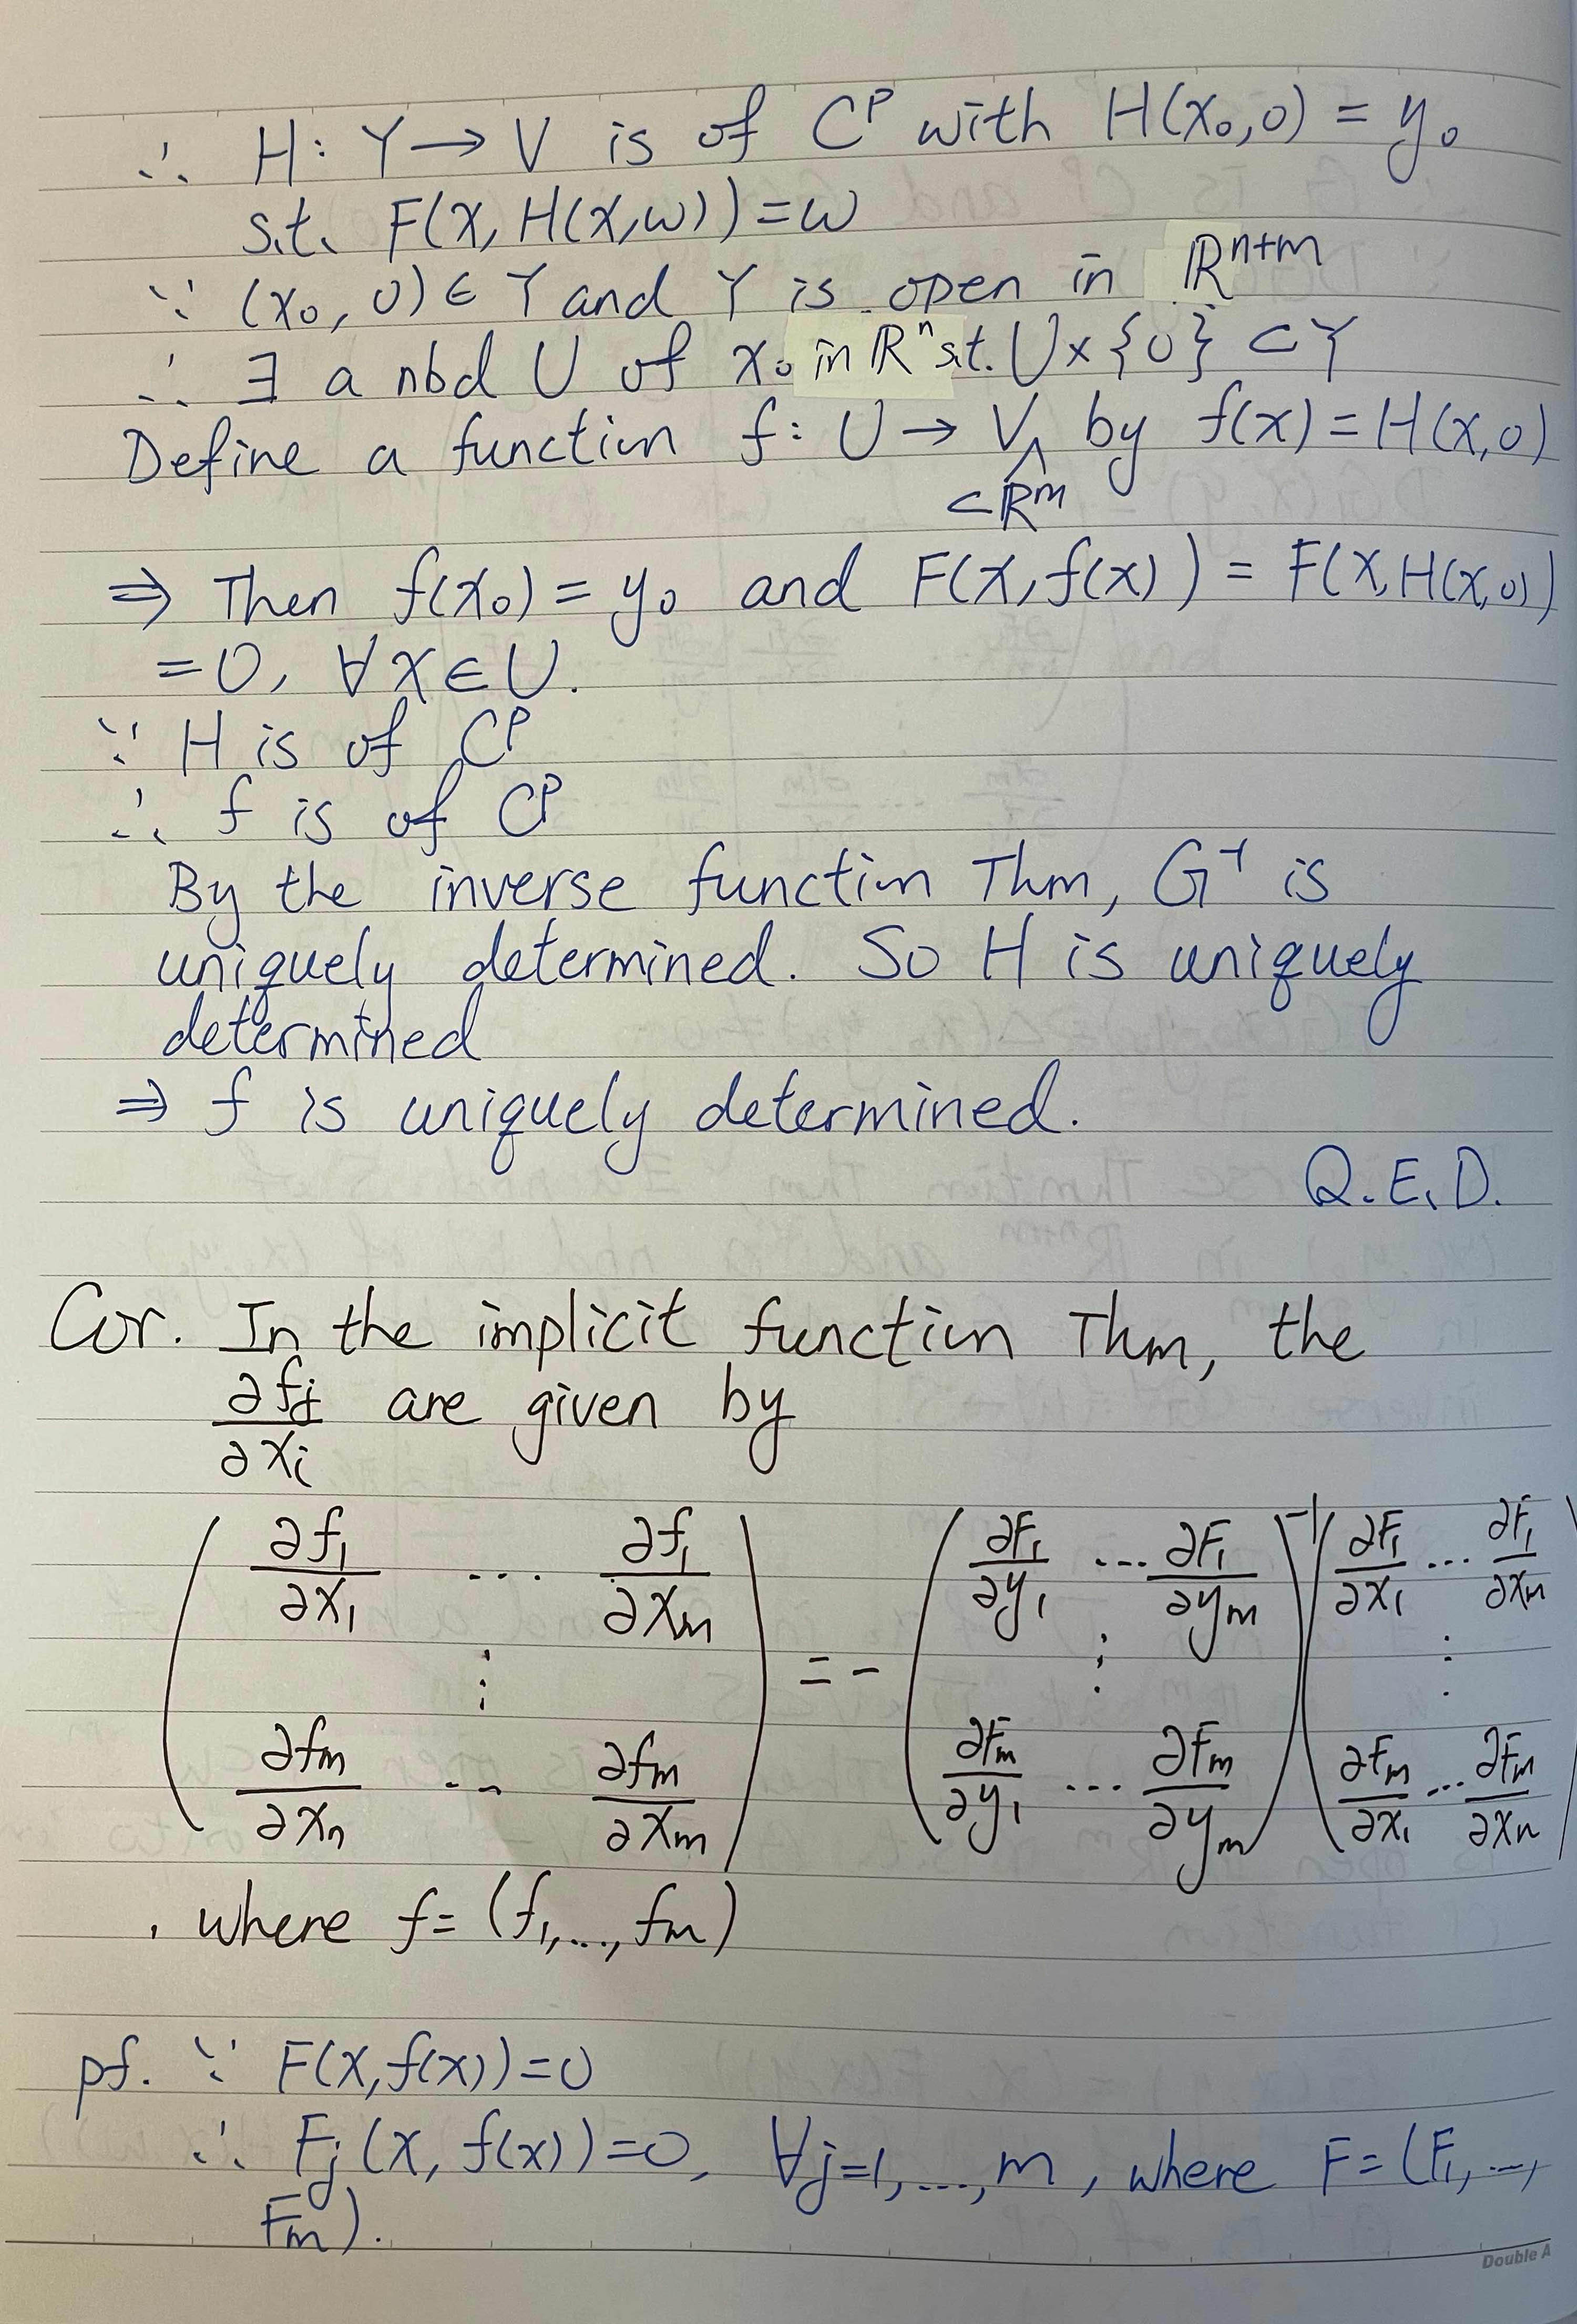 ∴ H: Y → V is of Cᵖ with H(x₀,0) = y₀
s.t. F(x, H(x,w)) = w
∵ (x₀, 0) ∈ Y and Y is open in ℝⁿ⁺ᵐ
∴ ∃ a nbd U of x₀ in ℝⁿ s.t. U×{0} ⊂ Y
Define a function f: U → V by f(x) = H(x,0)
⊂ℝᵐ
⇒ Then f(x₀) = y₀ and F(x, f(x)) = F(x, H(x,0))
= 0, ∀x∈U.
∵ H is of Cᵖ
∴ f is of Cᵖ
By the inverse function Thm, G⁻¹ is
uniquely determined. So H is uniquely
determined
⇒ f is uniquely determined.
Q.E.D.
Cor. In the implicit function Thm, the
∂fⱼ/∂xᵢ are given by
( ∂f₁/∂x₁ ... ∂f₁/∂xₘ ) = - ( ∂F₁/∂y₁ ... ∂F₁/∂yₘ )⁻¹ ( ∂F₁/∂x₁ ... ∂F₁/∂xₙ )
⋮ ⋮ ⋮
( ∂fₘ/∂xₙ ... ∂fₘ/∂xₘ ) ( ∂Fₘ/∂y₁ ... ∂Fₘ/∂yₘ ) ( ∂Fₘ/∂x₁ ... ∂Fₘ/∂xₙ )
, where f = (f₁,...,fₘ)
pf. ∵ F(x, f(x)) = 0
∴ Fⱼ(x, f(x)) = 0, ∀j=1,...,m, where F = (F₁,...,
Fₘ).
Double A